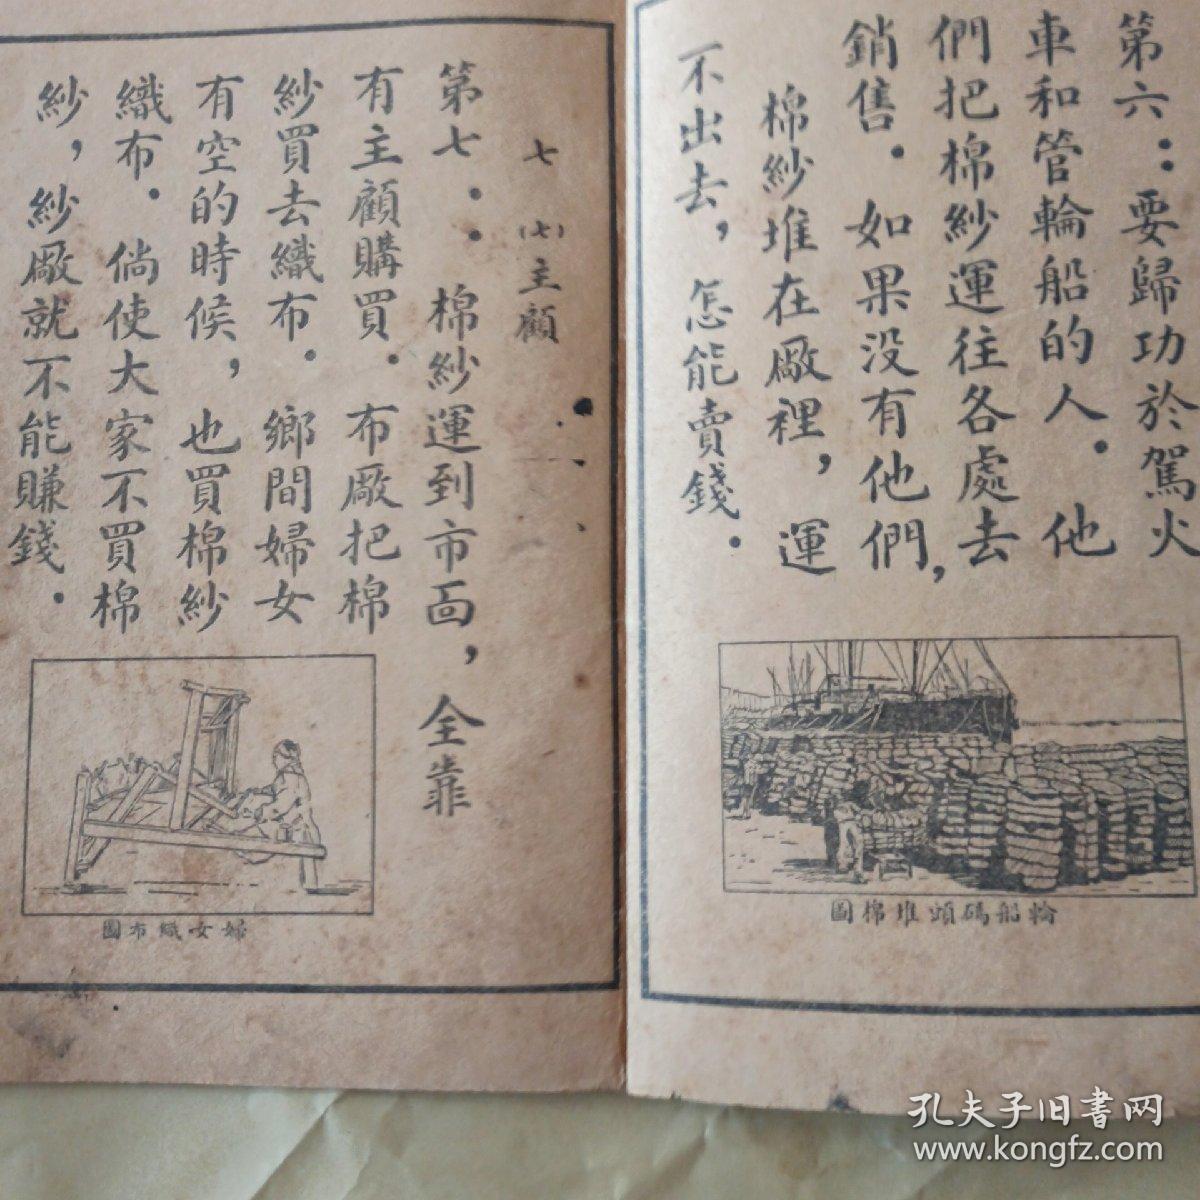 第六：要歸功於駕火
車和管輪船的人．他
們把棉紗運往各處去
銷售．如果没有他們，
棉紗堆在廠裡，運
不出去，怎能賣錢．
輪船碼頭堆棉圖
七 (七)主顧
第七：棉紗運到市面，全靠
有主顧購買．布廠把棉
紗買去織布．鄉間婦女
有空的時候，也買棉紗
織布．倘使大家不買棉
紗，紗廠就不能賺錢．
婦女織布圖
孔夫子旧書网
www.kongfz.com